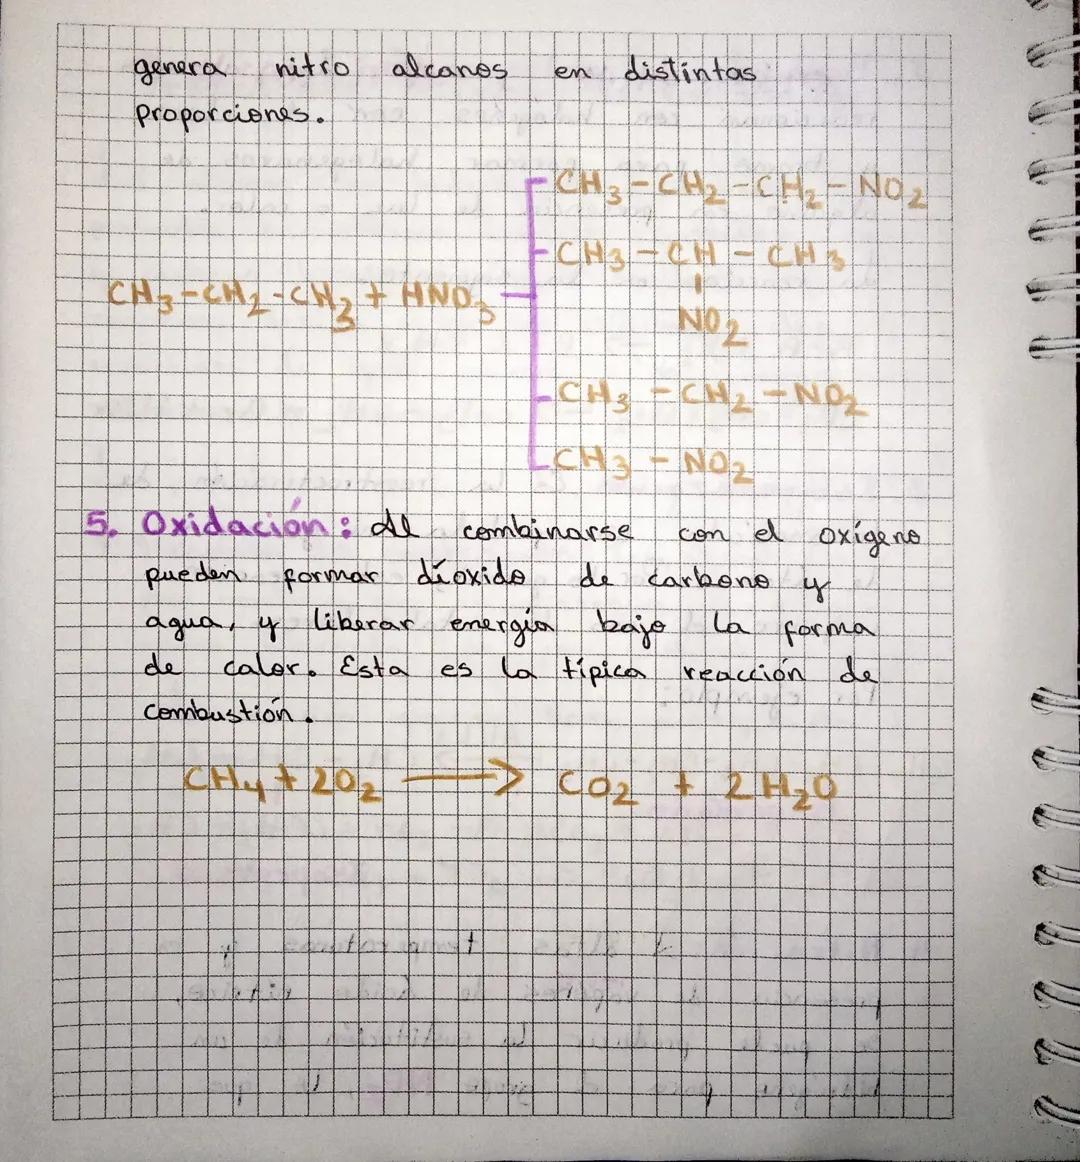 genera nitro alcanos en distintas
proporciones.
CH3-CH2-CH2-NO2
CH3-CH-CH3
NO2
CH3-CH2-CH3 + HNO3
CH3-CH2-NO2
CH3-NO2
5. Oxidación: Al combinarse con el oxígeno
pueden formar dióxido de carbono y
agua, y liberar energía bajo la forma
de calor. Esta es la típica reacción de
combustión.
CH4 + 2O2 → CO2 + 2H2O